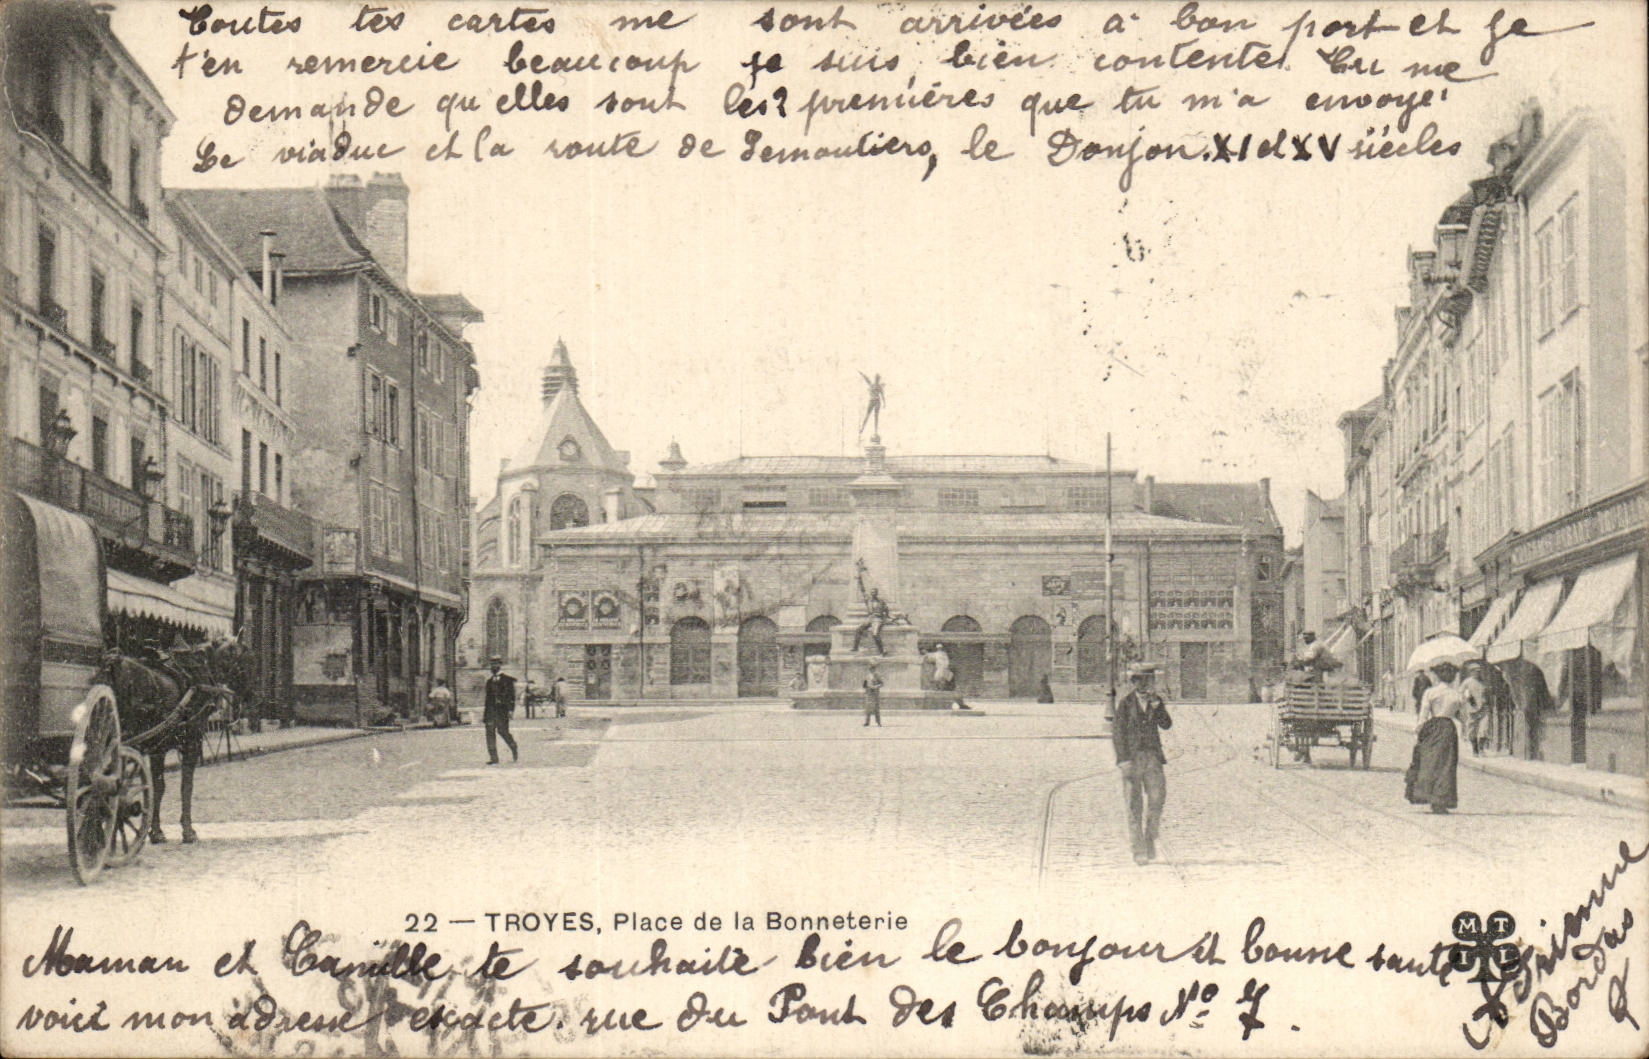 Toutes tes cartes me sont arrivées a bon port et je
t'en remercie beaucoup je suis bien contente. Tu me
demande qu'elles sont les 2 premières que tu m'a envoyé
Le viaduc et la route de Semoutiers, le Donjon XI et XV siècles
22 — TROYES, Place de la Bonneterie
Maman et Camille te souhaite bien le bonjour et bonne santé
voici mon adresse exacte. rue du Pont des Champs No 7.
M T
Bordas